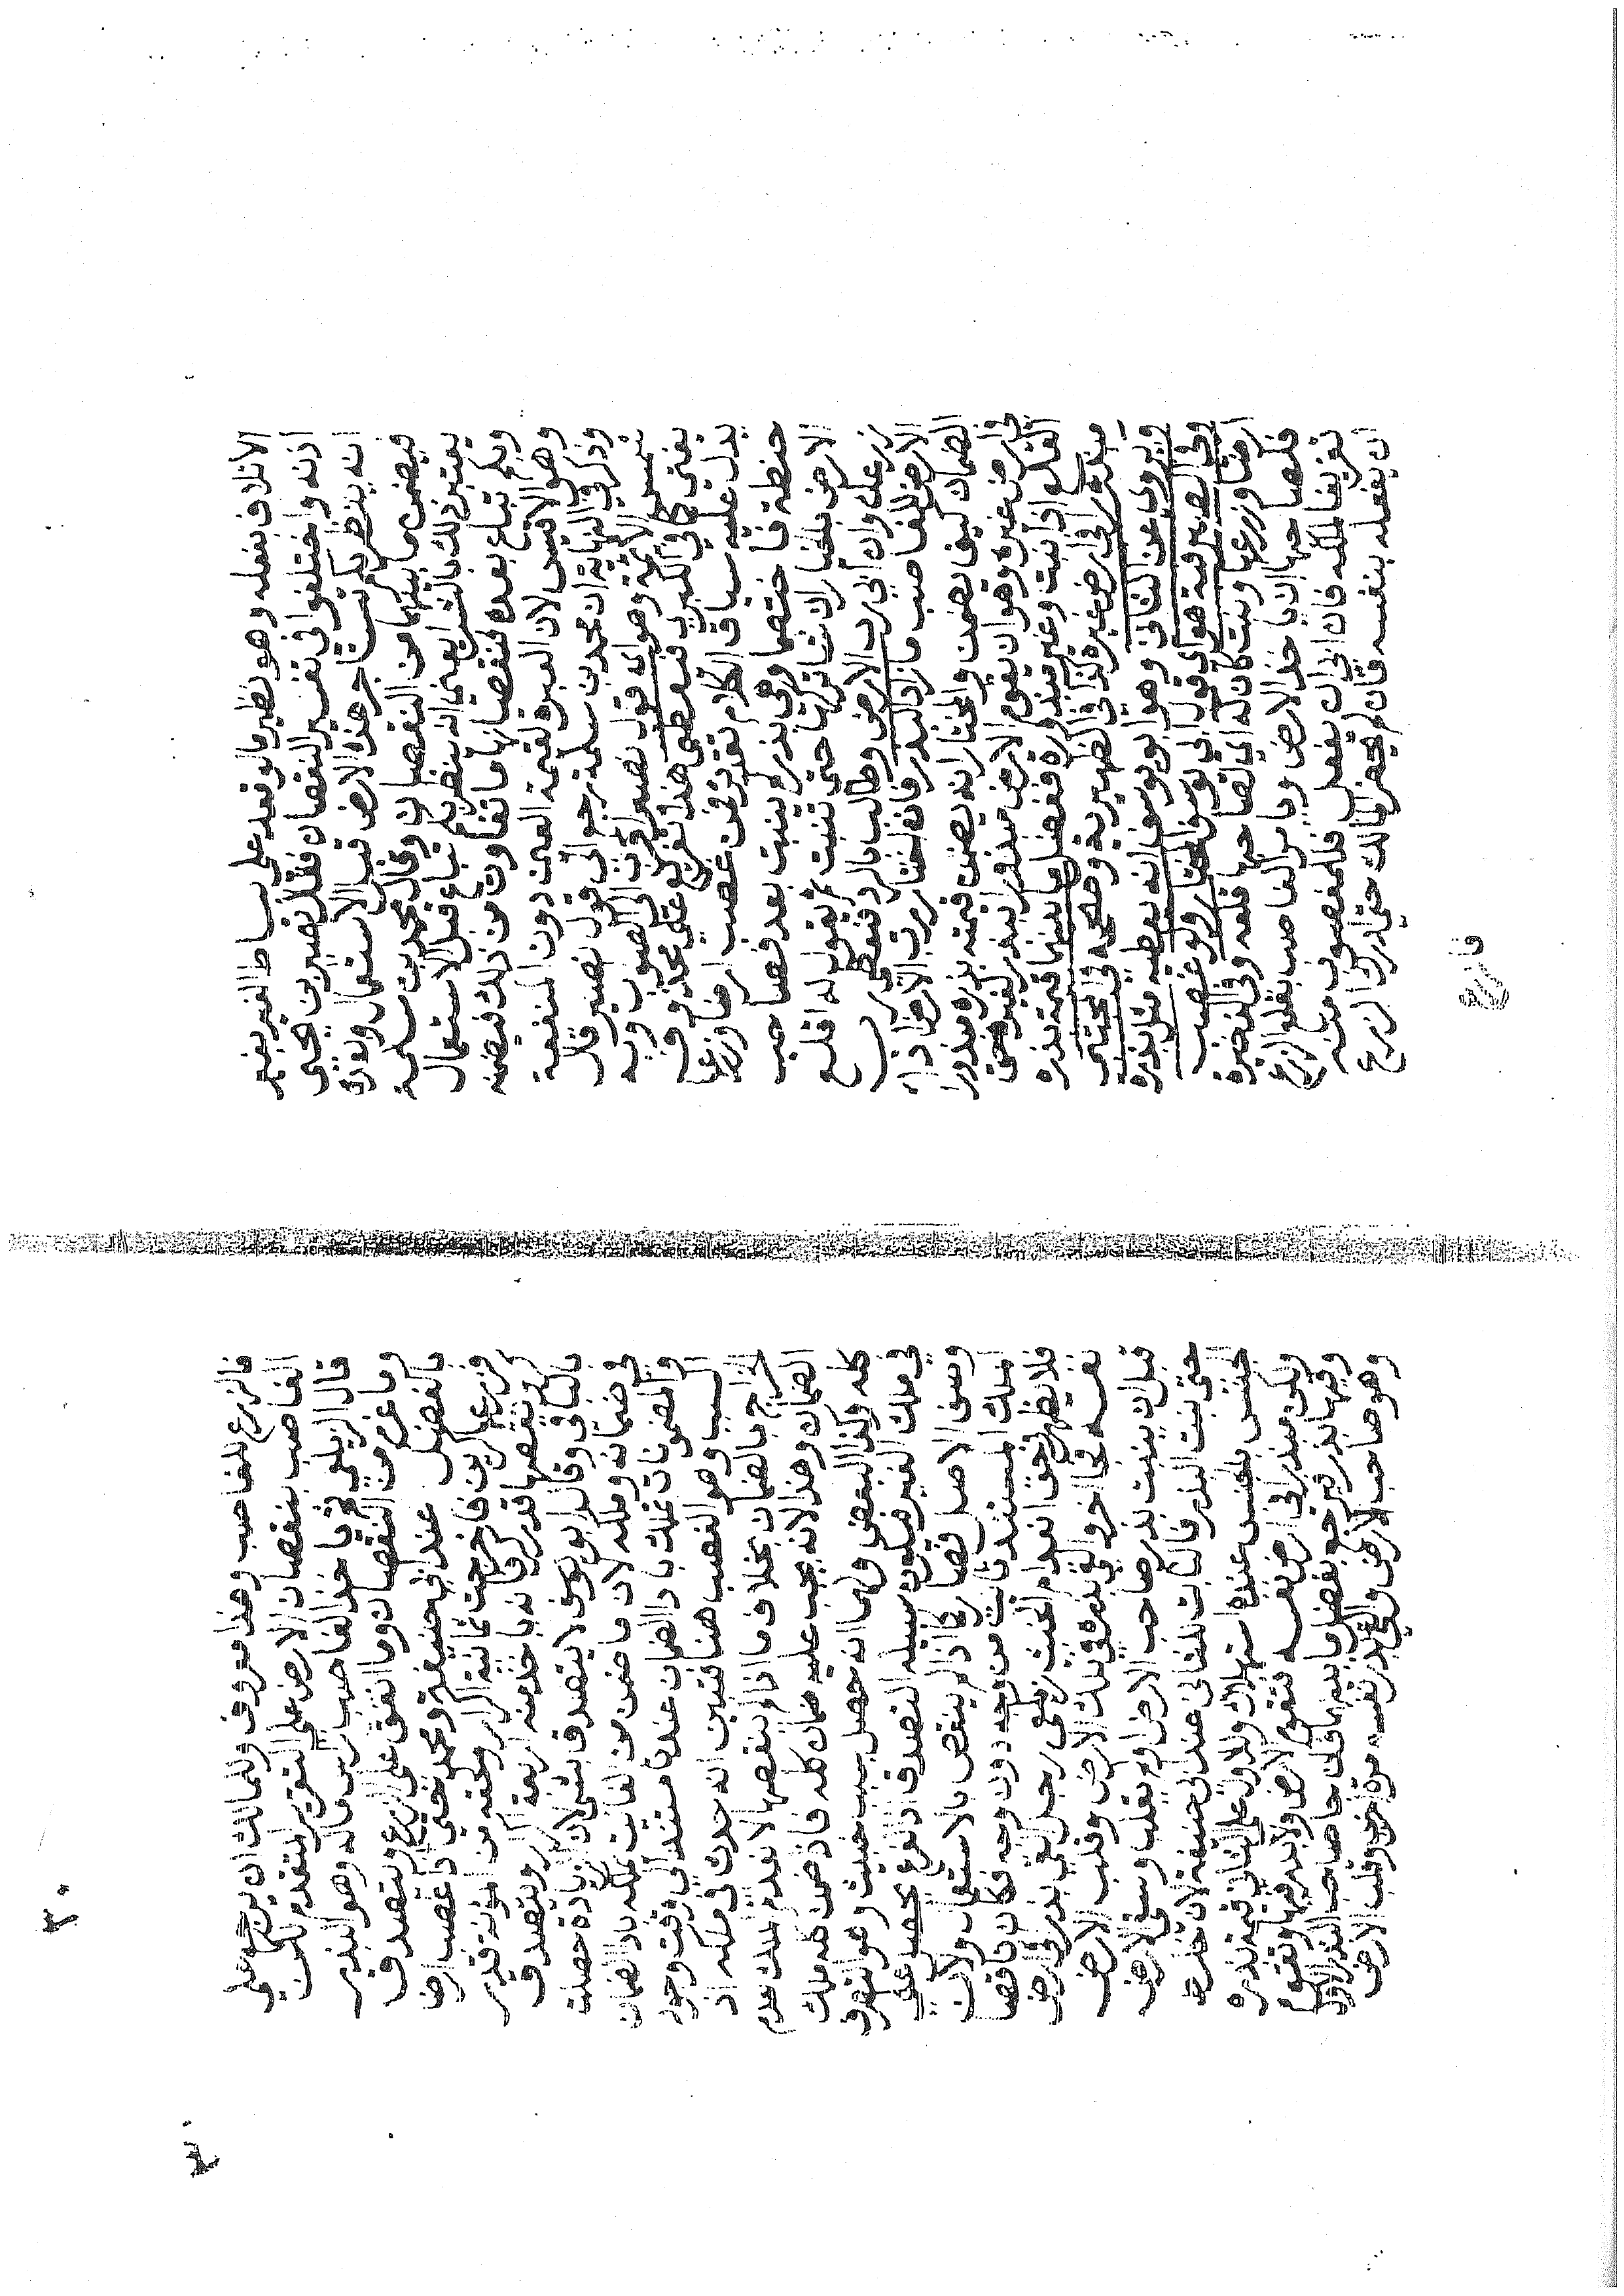 الاتلاف بفعله وهو نظير ما لو تعد على بساط الغير بغير
اذنه واختلفوا في تفسير النقصان فقال نصير بن يحيى
انه ينظر بكم تستاجر هذه الارض قبل الاستعمال وبعده
فيضمن ما بينهما من النقصان وقال محمد بن سلمة
يعتبر ذلك بالشراء يعني انه ينظر بكم تباع قبل الاستعمال
وبكم تباع بعده فنقصانها ما تفاوت من ذلك فيضمنه
وهو الاقيس لان العبرة لقيمة العين دون المنفعة
وذكر في النهاية ان محمد بن سلمة رجع الى قول نصير قال
شمس الائمة وهو اي قول نصير اقرب الى الصواب وبه
يفتى كما في الكبرى فيعطى هذا تفريع على محذوف
يدل عليه سياق الكلام تقديره فمن غصب ارضا وزرعها
حنطة فاختصما وهي بذر لم ينبت بعد فصاحب
الارض بالخيار ان شاء تركها حتى تنبت ثم يقول له اقلع
زرعك وان ابى رب الارض وطالب بالرد فيعطي رب
الارض للغاصب ما زاد البذر فانه اختار رب الارض اداء
الضمان كيف يضمن والمختار انه يضمن قيمته بذره مبذورا
في ارض غيره وهو ان يقوم الارض مبذورا ببذر لغيره حق
القلع اذا نبت وغير مبذورة ففضل ما بينهما قيمة بذره
مبذورا في ارض غيره كذا في الظهيرية وصححه في المجتبى
ويروى عن الثاني وهو ابو يوسف انه يعطيه مثل بذره
وفي الصيرفية هو اي قول ابي يوسف المختار ولو غصب
ارضا وزرعها ونبت كان له اي لصاحبها قلعه وفي الذخيرة
فلصاحبها ان ياخذ الارض ويامر الغاصب بقلع الزرع
تفريغا لملكه فان ابى ان يفعل فللمغصوب منه
ان يفعله بنفسه فان لم يحضر المالك حتى ادرك الزرع
فالزرع
فالزرع للغاصب وهذا معروف وللمالك ان يرجع على
الغاصب بنقصان الارض على التقرير المتقدم لكن
قال الزيلعي ثم ياخذ الغاصب راس ماله وهو البذر
وما غرم من النقصان وما انفق على الزرع ويتصدق
بالفضل عند ابي حنيفة ومحمد حتى اذا غصب ارضا
فزرعها كرين فاخرجت ثمانية اكرار ولحقه من المؤنة قدر
كر ونقصها قدر كر فانه ياخذ منه اربعة اكرار ويتصدق
بالباقي وقال ابو يوسف لا يتصدق بشي لان الزيادة حصلت
في ضمانه وملكه لان ما ضمن من الفايت يملكه باداء الضمان
والمضمونات تملك باداء الضمان عندنا مستندا الى وقت وجود
السبب وهو الغصب هنا فتبين انه حدث في ملكه اذ
الخراج بالضمان بخلاف ما اذا لم ينقصها لانعدام الملك لعدم
الضمان وهذا لانه يجب عليه ضمان كله فاذا ضمن كله ملك
كله وكذا البعض ولهما انه حصل بسبب خبيث وهو التصرف
في ملك الغير فيكون سبيله التصدق اذ الفرع يحصل على
وصف الاصل فصار كما اذا لم ينقص بالاستعمال ولان
الملك المستند ثابت من وجه دون وجه فكان ناقصا
فلا يظهر في حق انعدام الخبث زيلعي رجل القى بذر في ارض
نفسه فجاء اخر والقى بذره في تلك الارض وقلب الارض
قبل ان ينبت بذر صاحب الارض او لم يقلب وسقى الارض
حتى نبت البذر فالنابت للثاني عند ابي حنيفة لان خلط
الجنس بالجنس عنده استهلاك وللاول على الثاني قيمة بذره
ولكن مبذرا في ارض نفسه فتقوم الارض ولا بذر فيها وتقوم
وفيها بذر فيرجع بفضل ما بينهما فان جاء صاحب البذر الاول
وهو صاحب الارض والقى بذر نفسه مرة اخرى وقلب الارض
٣٠